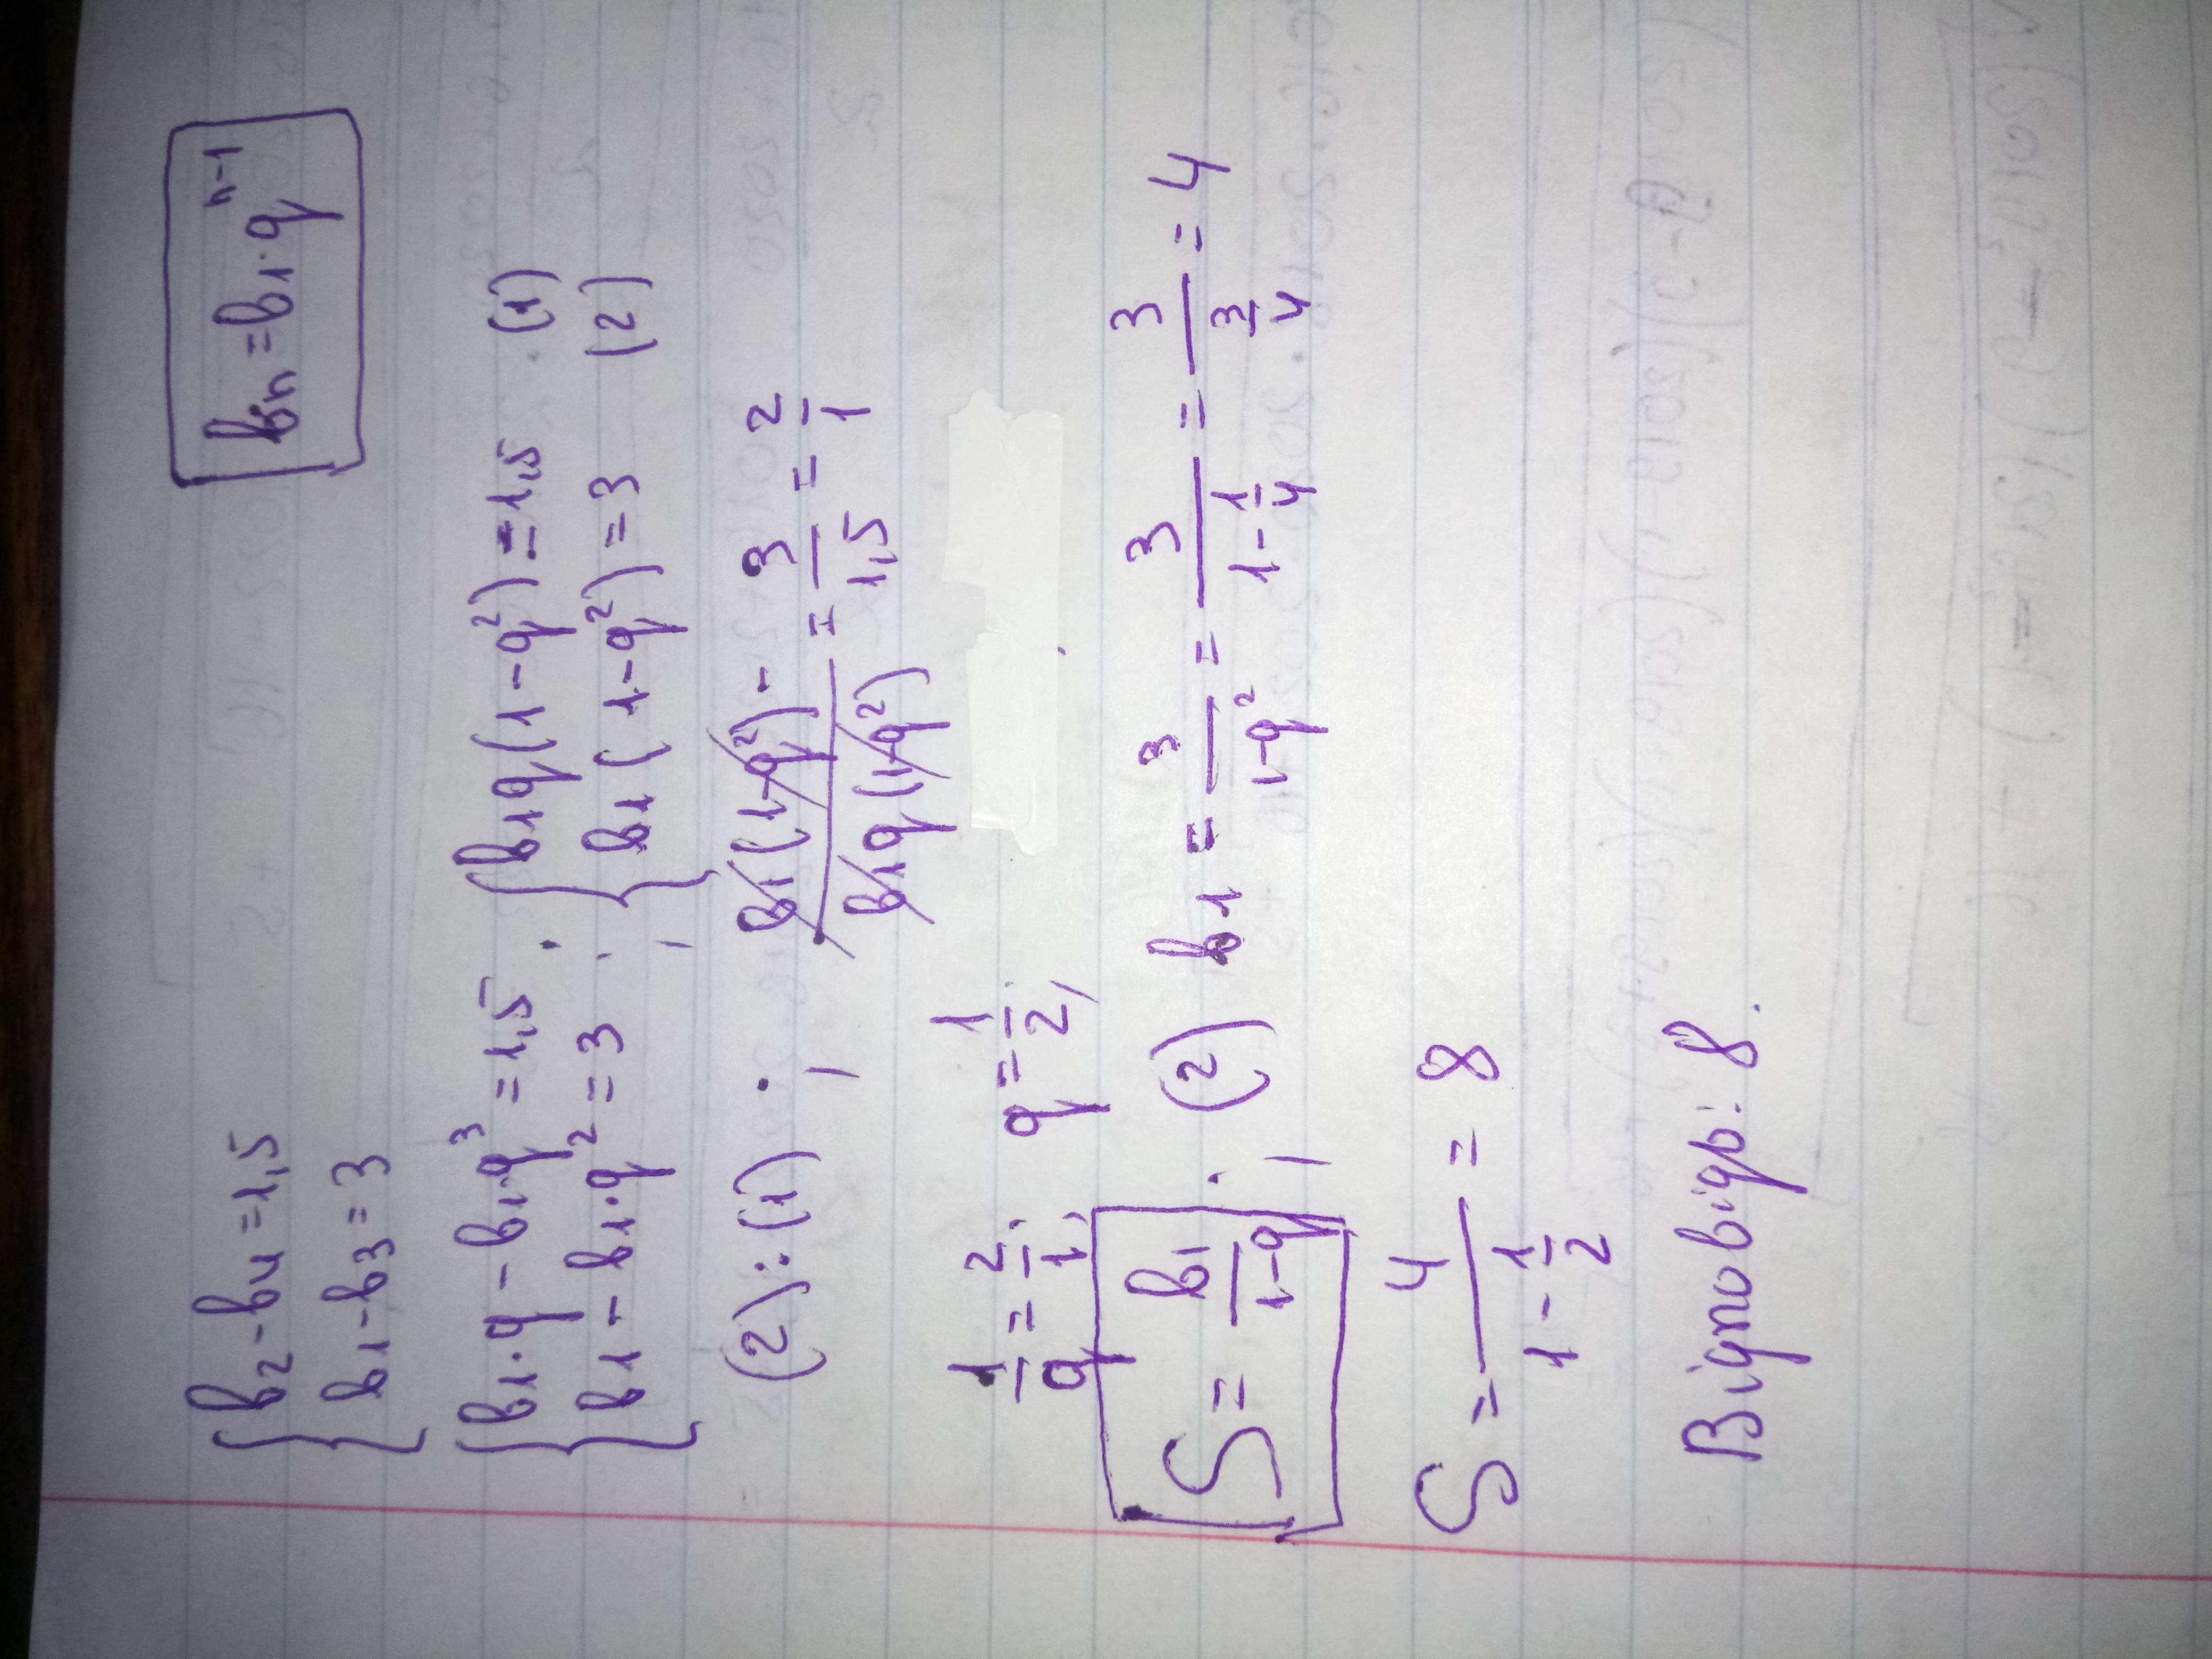 bₙ = b₁·qⁿ⁻¹
{ b₂ - b₄ = 1,5
b₁ - b₃ = 3
{ b₁·q - b₁·q³ = 1,5 ; { b₁q(1-q²) = 1,5 (1)
b₁ - b₁·q² = 3 ; b₁(1-q²) = 3 (2)
(2):(1) ; b₁(1-q²) / b₁q(1-q²) = 3/1,5 = 2/1
1/q = 2/1; q = 1/2;
S = b₁/(1-q) ; (2) b₁ = 3/(1-q²) = 3/(1-1/4) = 3/(3/4) = 4
S = 4/(1-1/2) = 8
Відповідь: 8.